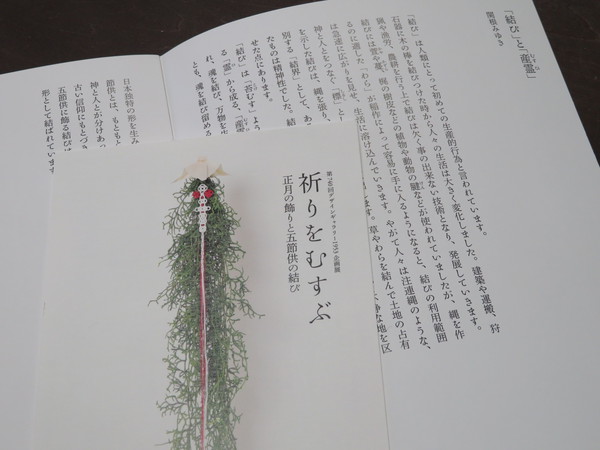 「結び」と「産霊」
むすび
関根みゆき
「結び」は人類にとって初めての生産的行為と言われています。
石器に木の棒を結びつけた時から人々の生活は大きく変化しました。建築や運搬、狩
猟や漁労、農耕を行う上で結びは欠く事の出来ない技術となり、発展していきます。
結びには蔓や蔓、梶の樹皮などの植物や動物の腱などが使われていましたが、縄を作
るのに適した「わら」が稲作によって容易に手に入るようになると、結びの利用範囲
は急速に広がりを見せ、生活に溶け込んでいきます。やがて人々は注連縄のような、
神と人とをつなぐ「標」と
ます。草やわらを結んで土地の占有
を示した結びは、縄を張り、
浄な地を区
別する「結界」として、あ
たものは精神性でした。結
せた点にあります。
「結び」は「苔むす」よう
る「霊」から成る、「産霊
れ、魂を結び、万物を
とも、魂を結び留める
日本独特の形を生み
節供とは、もともと
神と人とが分けあっ
古い信仰にもとづき
五節供に飾る結びは
形として結ばれています
第746回デザインギャラリー1953 企画展
祈りをむすぶ
正月の飾りと五節供の結び